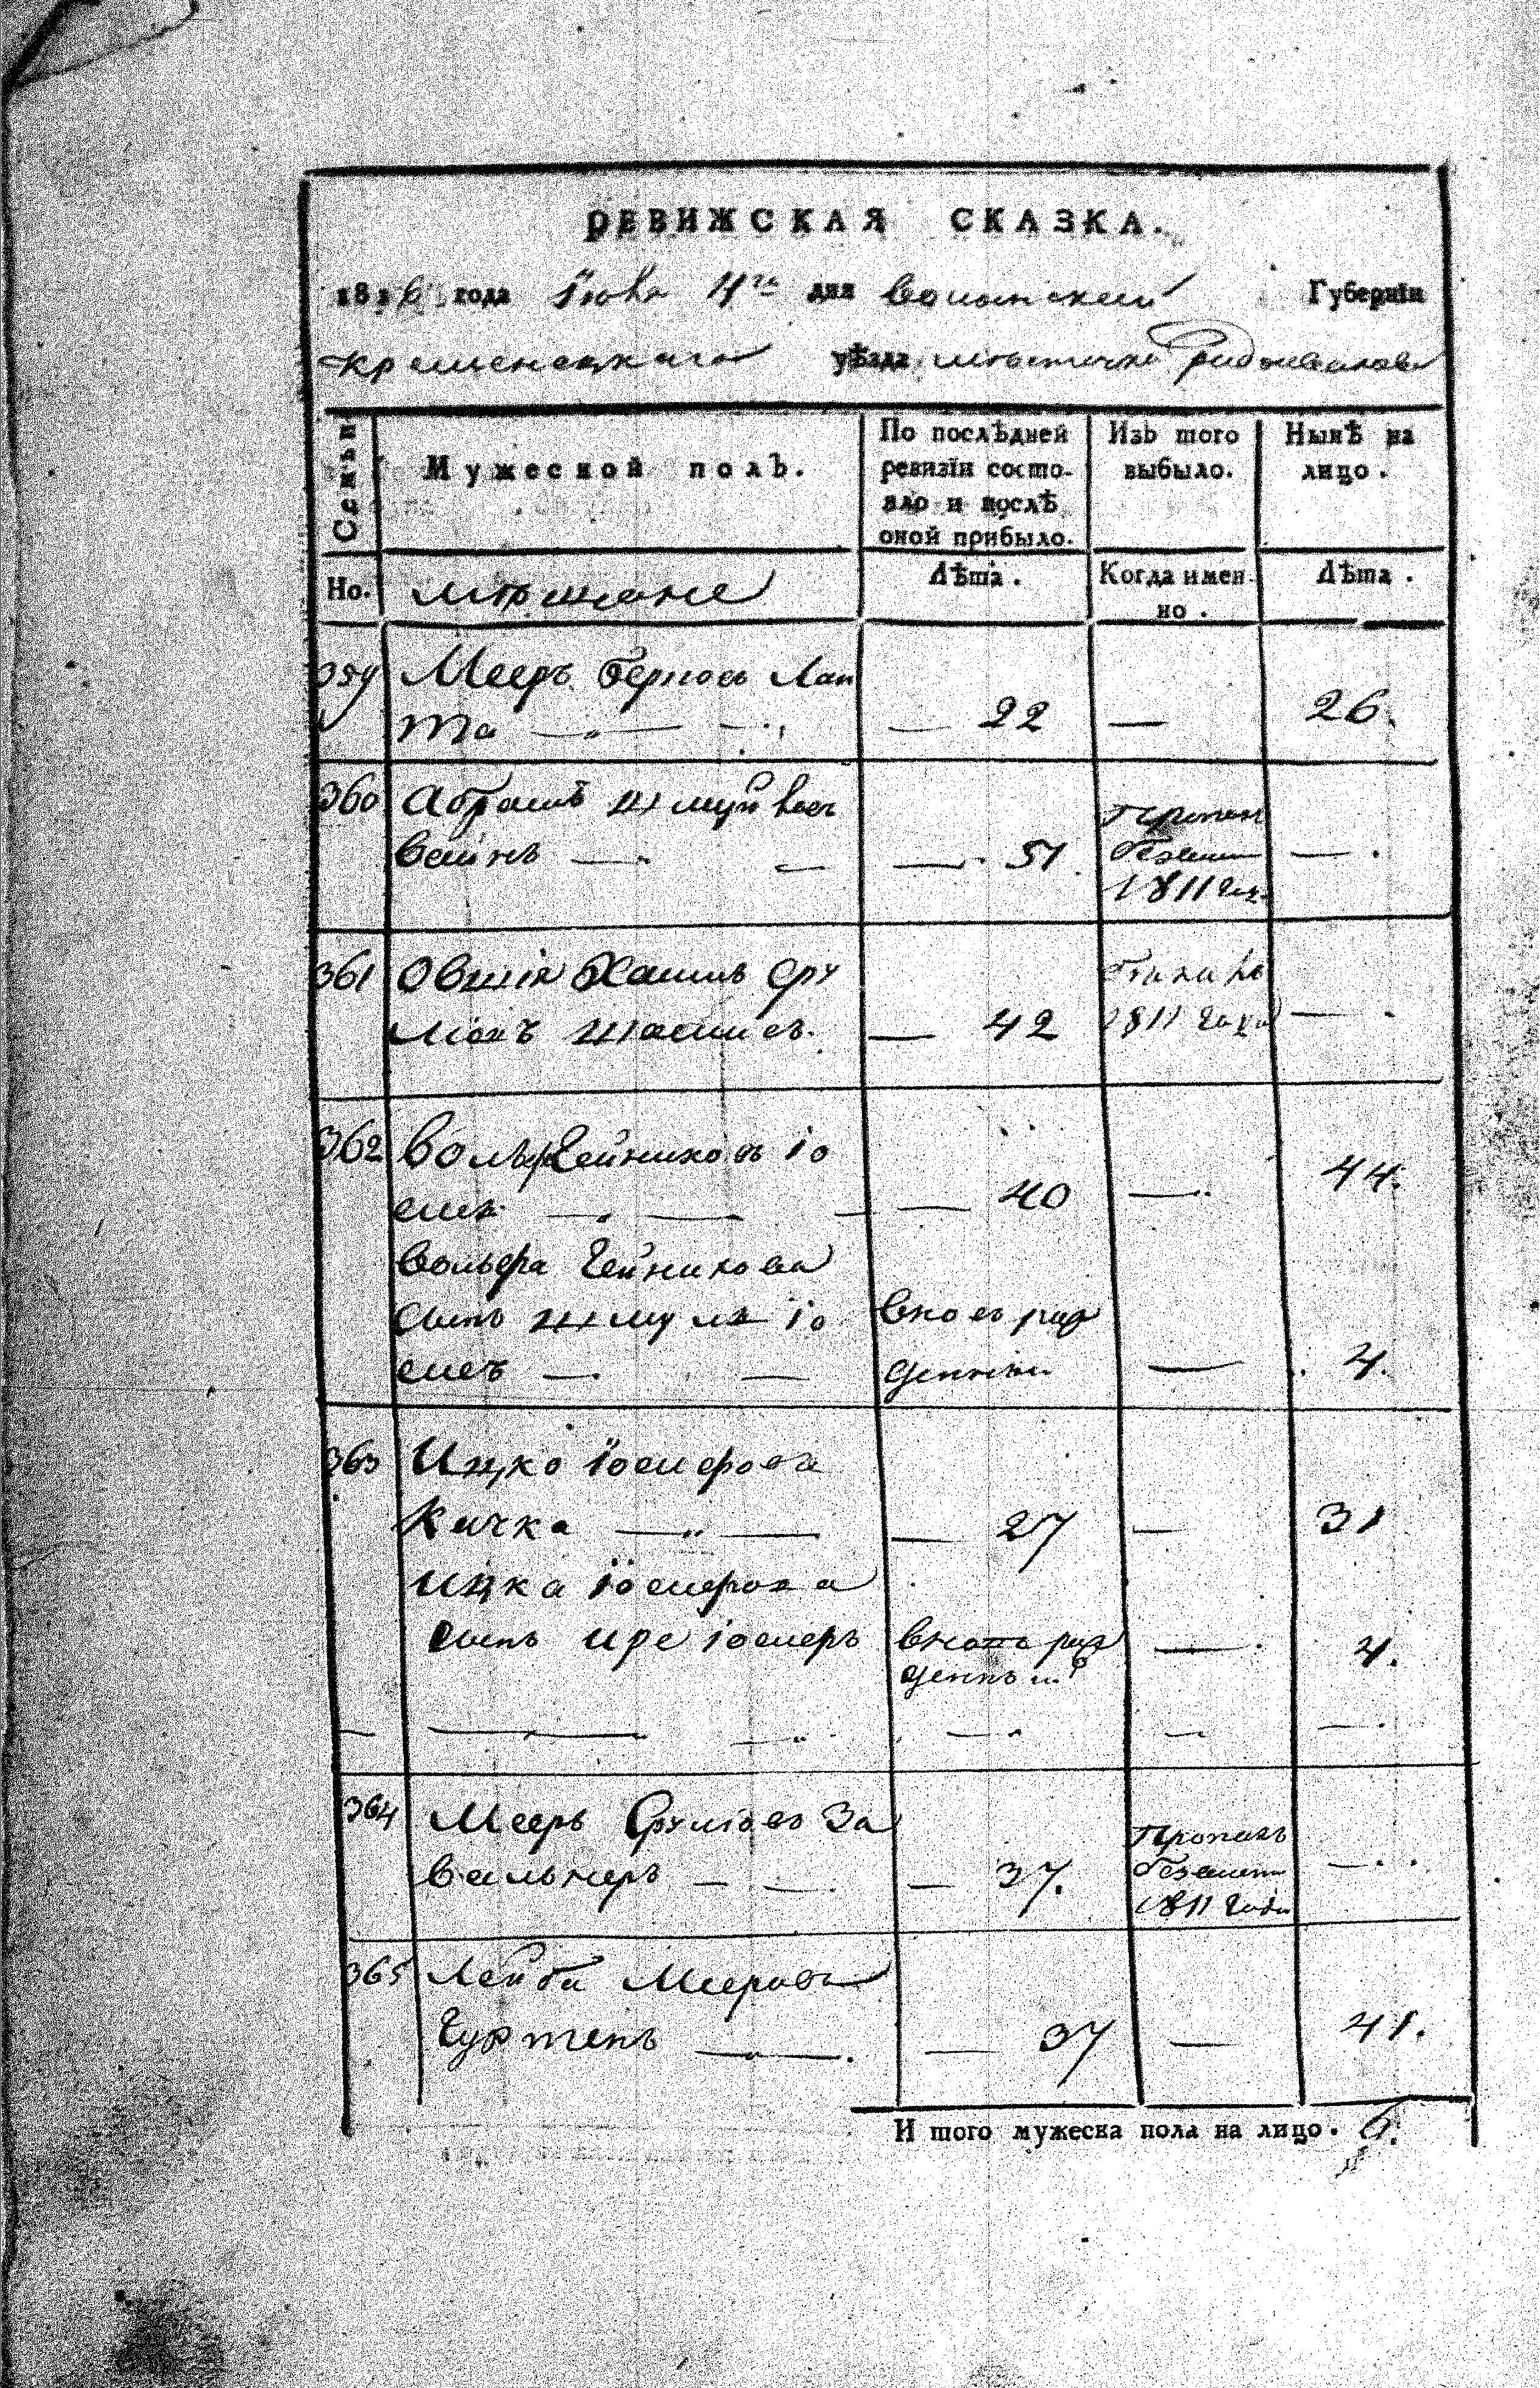 РЕВИЖСКАЯ СКАЗКА.
1816 года Iюня 4го дня Волынской Губернiи
Кременецкаго уѣзда мѣстечка Радзивилова
Семьи
Мужеской полъ.
По послѣдней ревизiи состояло и послѣ оной прибыло.
Изъ того выбыло.
Нынѣ на лицо.
Но.
мѣщане
Лѣта.
Когда имен-
но.
Лѣта.
359 Мееръ Берковъ Лан
та — 22 — 26.
360 Абрамъ Шмул
вейнъ — 51
1811
361 Овшiя Хаимъ Сру
— 42 1811 года —
362 Вольфъ Гейниховъ Iо
— 40 — 44.
Вольфа Гейнихова
сынъ Шмуль Iо вновь рож
денный — 4.
363 Ицко Iосифовъ
Качка — 27 — 31
Ицка Iосифова
сынъ Iосифъ вновь рож
денный — 4.
364 Мееръ Срулiовъ За
вальнеръ — 37. Пропалъ
безвести
1811 года —
365 Лейба Мееровъ
Гуртенъ — 37 — 41.
И того мужеска пола на лицо. 6.